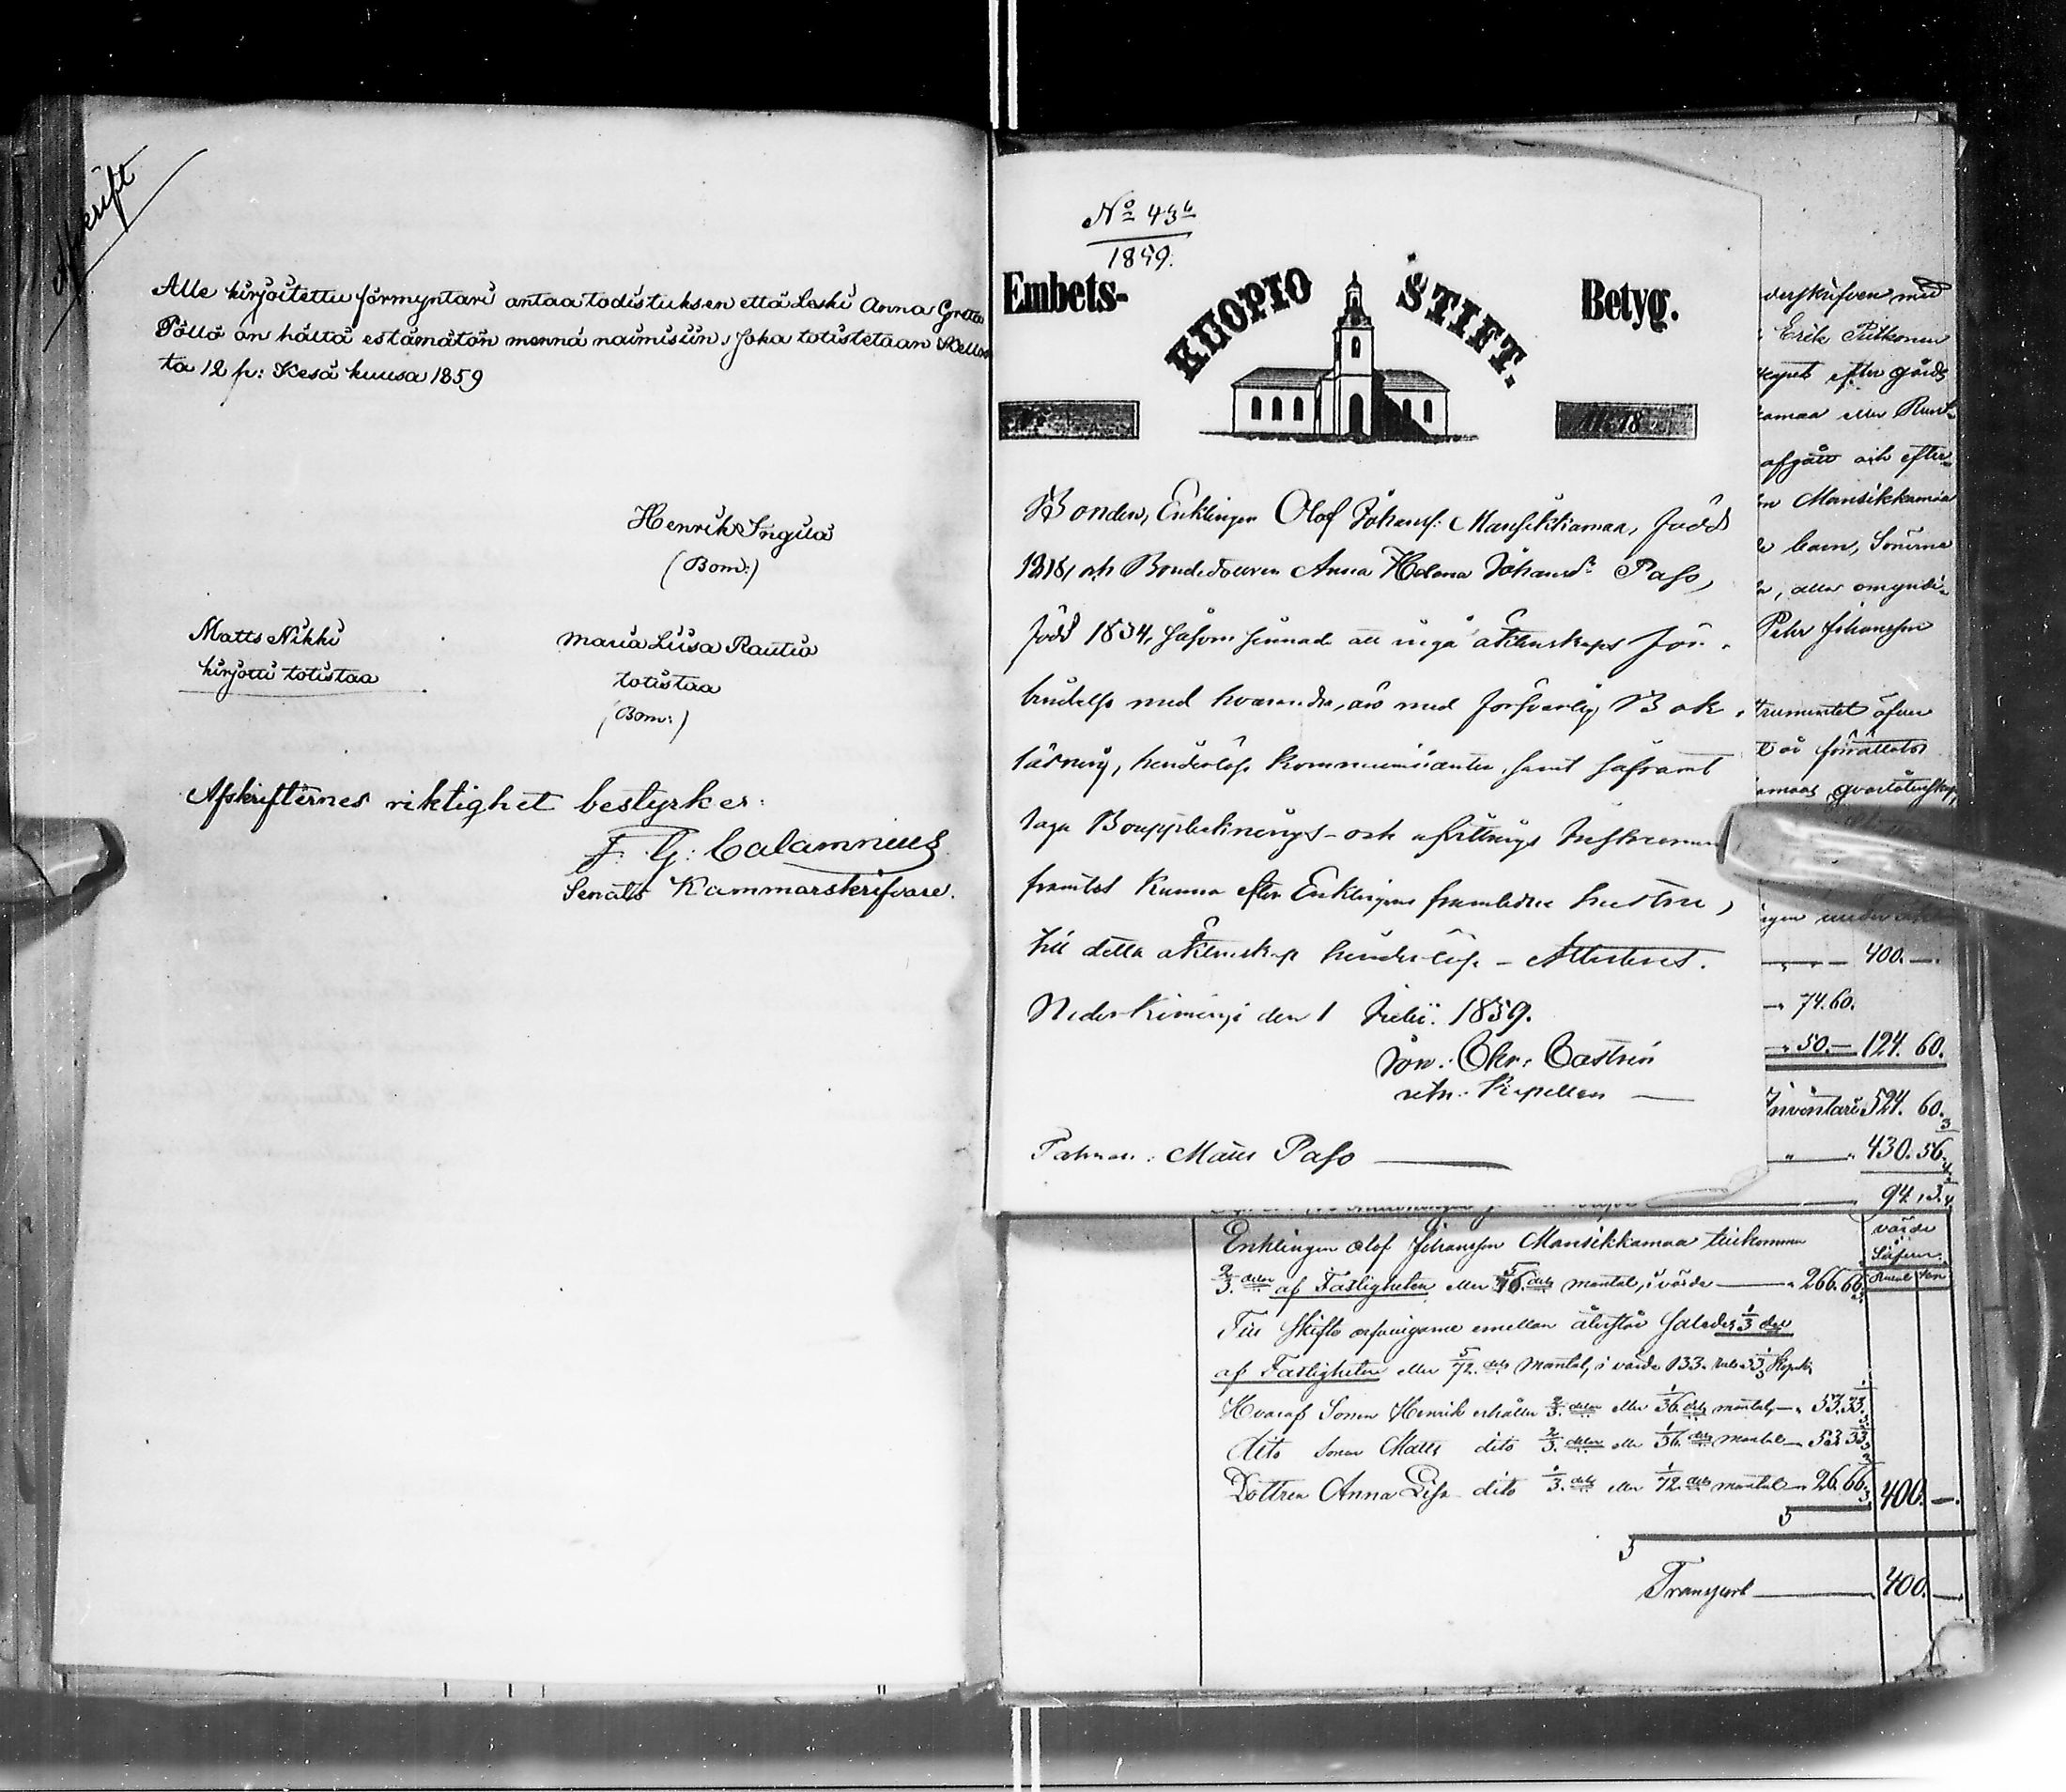 Afskrift
Alle kirjoitettu förmyntäri antaa todistuksen että Leski Anna Greta
Pöllä on hältä estämätön mennä naimisiin, Joka totistetaan Kellos
ta 12 p: Kesä kuusa 1859
Henrik Ingilä
(Bom:)
Matts Nikki
kirjotti totistaa
Maria Liisa Rautio
totistaa
(Bom:)
Afskrifternes riktighet bestyrker:
F. G. Calamnius
Senats Kammarskrifvare.
No 436
1859.
Embets- KUOPIO STIFT. Betyg.
Bonden, Enklingen Olof Johanss: Mansikkamaa, född
1818, och Bondedottren Anna Helena Johansdr Paso,
född 1834, såsom sinnade att ingå äktenskaps för-
bindelse med hvarandra, äro med försvarlig Bok-
läsning, hinderlöse kommunicanter, samt såframt
laga Bouppteknings- och afvittrings Instrument
framtes kunna efter Enklingens framledne hustru,
till detta äktenskap hinderlöse - Attesteras.
Nederkiminge den 1 Julii. 1859.
Jon. Chr. Castrén
Kapellan
Talman: Matts Paso
derskrifven med
Erik Pitkonen
skapet efter gårds
kamaa eller Runt-
afgått och efter-
Mansikkamaa
barn, Sönerna
, alla omyndi-
Pehr Johansson
trumentet öfver
är förrättats
under
400. —
74. 60.
50. — 124. 60.
Inventarie 524. 60.
" " 430. 56
94. 3.
Enklingen Olof Johansson Mansikkamaa tillkommer
2/3 delar af Fastigheten eller 5/36 dels mantal, i värde — 266. 66
värde
Silfver.
Rubel Kop
Till skifte arfvingarne emellan återstår således 1/3 del
af Fastigheten eller 5/72 dels mantal, i värde 133. Rub. 33 1/3 Kopek
Hvaraf Sonen Henrik erhåller 2/5 delar eller 1/36 dels mantal, — 53. 33.
dito Sonen Matts dito 2/5 delar eller 1/36 dels mantal — 53 33
Dottren Anna Lisa dito 1/5 dels eller 1/72 dels mantal — 26. 66 400. —
Transport — 400. —